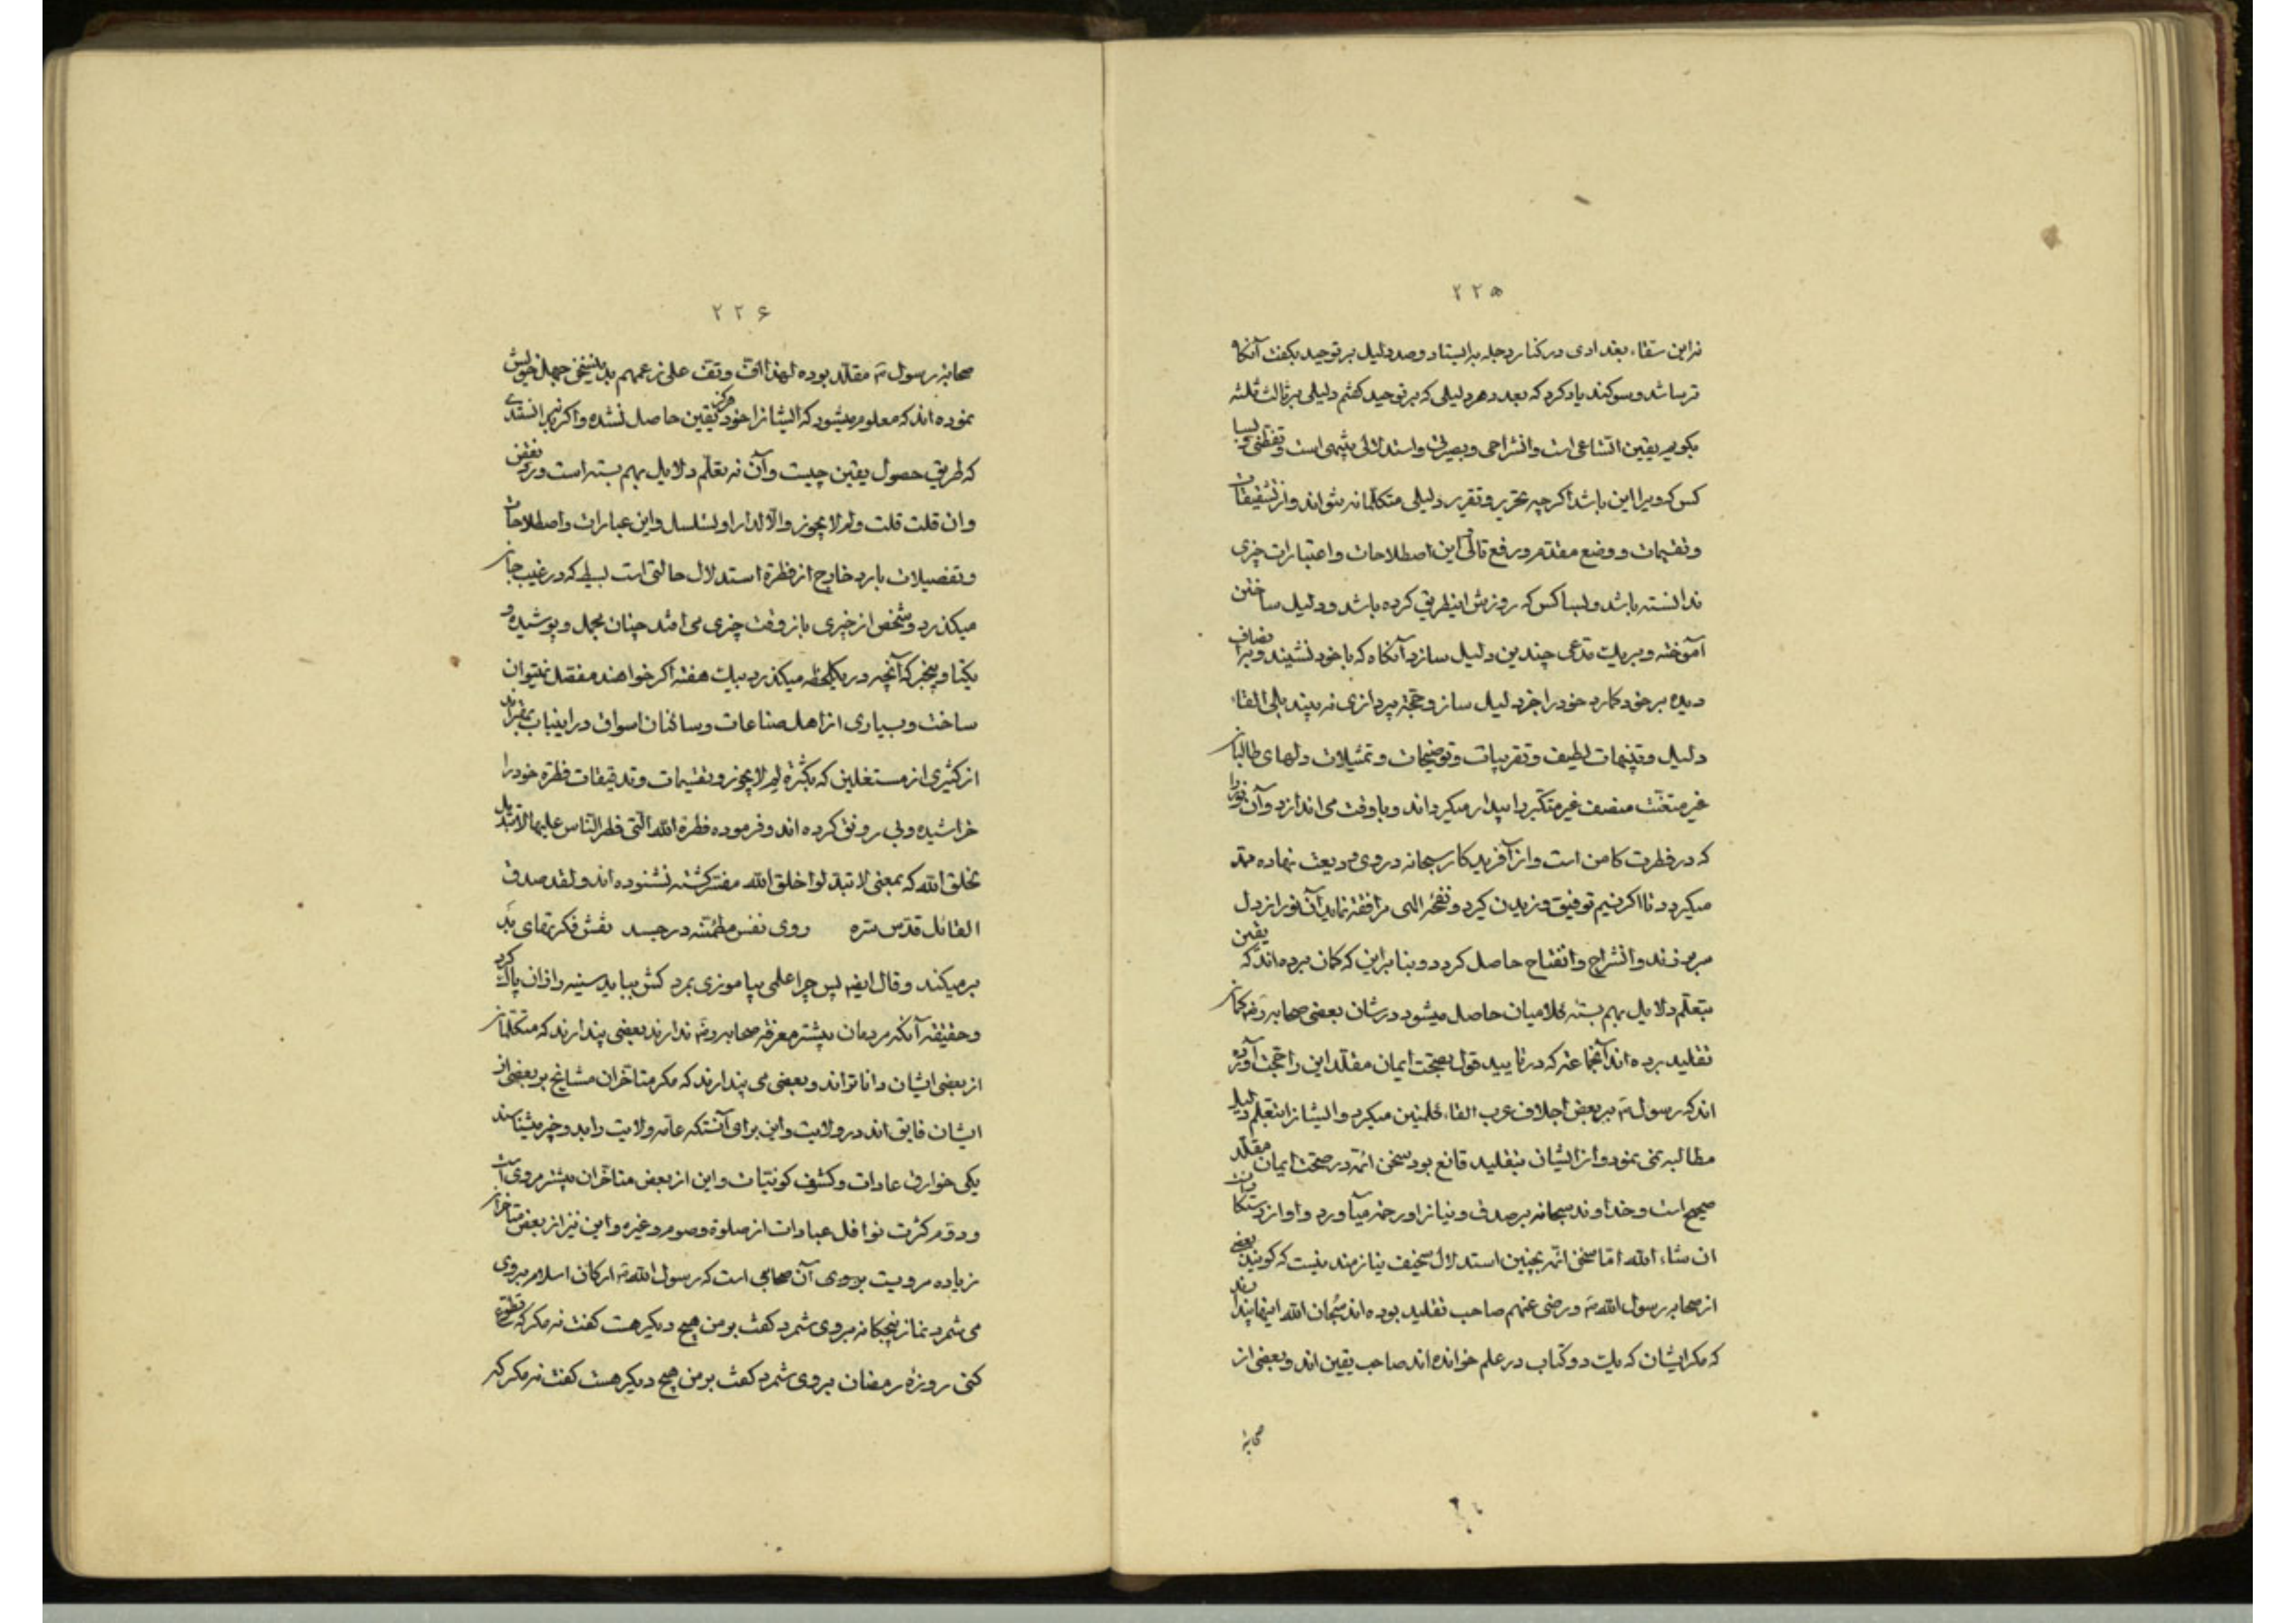 ۲۲۵
نه ابن سقاء بغدادی در کنار دجله بایستاد و صد دلیل بر توحید بگفت آنگاه
ترسا شد و سوگند یاد کرد که بعدد هر دلیلی که بر توحید گفتم دلیلی بر ثالث ثلثه
بگویم یقین اتساعی است و انشراحی و بصیرتی و استدلالی تنبهی است و تفطنی و بسا
کس که ویرا این باشد اگر چه تحریر و تقریر دلیلی متکلمانه نتواند و از تشقیقات
و تقسیمات و وضع مقدم و رفع تالی این اصطلاحات و اعتبارات چیزی
ندانسته باشد و بسا کس که روزش اینطریق کرده باشد و دلیل ساختن
آموخته و بر یک مدعی چندین دلیل سازد آنگاه که با خود نشیند و برا نصاف
دیده بر خود گمارد خود را جز دلیل ساز و حجة پردازی نه بیند بلی القاء
دلیل و تنبیهات لطیف و تقریبات و توضیحات و تمثیلات دلهای طالبان
غیر متعنت منصف غیر متکبر را بیدار میگرداند و باوفت می اندازد و آن نور را
که در فطرت کامن است و از آفریدگار سبحانه در وی ودیعت نهاده ممد
میگردد تا اگر نسیم توفیق وزیدن گیرد و نفحۀ الهی مرافقة نماید آن نور از دل
سر بر زند و انشراح و انفتاح حاصل گردد و بنا براین که گمان برده اند که یقین
بتعلم دلایل بهم بستۀ کلامیان حاصل میشود در شان بعضی صحابه رض گمان
تقلید برده اند آنجماعته که در تایید قول بصحت ایمان مقلد این را حجت آورده
اند که رسول ص بر بعض اجلاف عرب القاء کلمتین میکرد و ایشانرا بتعلم دلیل
مطالبه نمی نمود و از ایشان بتقلید قانع بود سخن ائمه در صحت ایمان مقلد
صحیح است و خداوند سبحانه بر صدق و نیاز او رحم میآورد و او از رستگاران است
ان شاء الله اما سخن ائمه بچنین استدلال سخیف نیازمند نیست که گویند بعضی
از صحابه رسول الله ص و رضی عنهم صاحب تقلید بوده اند سبحان الله اینها پندارند
که مگر ایشان که یک دو کتاب در علم خوانده اند صاحب یقین اند و بعضی از
صحابۀ
۲۲۶
صحابۀ رسول ص مقلد بوده لهذا اف و تف علی زعمهم بدین سخن جهل خویش
نموده اند که معلوم میشود که ایشانرا خود هرگز یقین حاصل نشده و اگر نه بدانستندی
که طریق حصول یقین چیست و آن نه بتعلم دلایل بهم بسته است و رد و نقض
و ان قلت قلت و لم لا یجوز و الا لدار او لتسلسل و این عبارات و اصطلاحات
و تفصیلات بارد خارج از فطرة استدلال حالتی است بسیط که در غیب جان
میگذرد و شخص از چیزی باز وفت چیزی می افتد چنان مجمل و پوشیده و
یکتا و بیخبر که آنچه در یکلحظه میگذرد بیک هفته اگر خواهند مفصل نتوان
ساخت و بسیاری از اهل صناعات و ساکنان اسواق در اینباب بمقدار
از کثیری از مستغلین که بکثرة لم لا یجوز و تقسیمات و تدقیقات فطرة خود را
خراشیده و بی رونق کرده اند و فرموده فطرة الله التی فطر الناس علیها لا تبدیل
لخلق الله که بمعنی لا تبدلوا خلق الله مفسر گشته نشنوده اند و لقد صدق
القائل قدس سره روی نفس مطمئنه در جسد نقش فکرتهای بد
بر میکند و قال ایضا پس چرا علمی بیاموزی بمرد کش بباید سینه را زان پاک کرد
و حقیقة آنکه مردمان بیشتر معرفة صحابه رض ندارند بعضی پندارند که متکلمان
از بعضی ایشان داناتراند و بعضی می پندارند که مگر متاخران مشایخ بر بعضی از
ایشان فایق اند در ولایت و این برای آنستکه عامه ولایت را بدو چیز شناسند
یکی خوارق عادات و کشف کونیات و این از بعض متاخران بیشتر مروی است
و دوم کثرت نوافل عبادات از صلوة و صوم و غیره و این نیز از بعض متاخران
زیاده مرویست بروی آن صحابی است که رسول الله ص ارکان اسلام بر وی
می شمرد نماز پنجگانه بر وی شمرد گفت بر من هیچ دیگر هست گفت نه مگر که تطوع
کنی روزۀ رمضان بر وی شمرد گفت بر من هیچ دیگر هست گفت نه مگر که